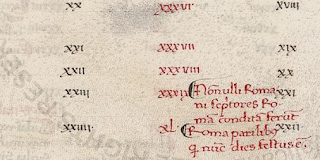 xx xxxvi xviii
xxi xxxvii xix
xxii xxxviii xx
xxiii xxxix Nonnulli Roma xxi
ni scptores Ro
mā condita ferūt xxii
xxiiii xl. Roma parilibꝰ
q nūc dies festus ē.